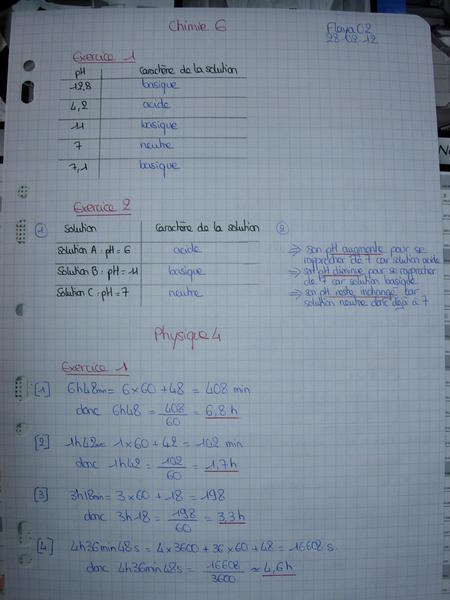 Chimie 6
Flaya02
28.02.12
Exercice 1
pH Caractère de la solution
12,8 basique
4,2 acide
11 basique
7 neutre
7,1 basique
Exercice 2
① Solution Caractère de la solution
Solution A : pH = 6 acide
Solution B : pH = 11 basique
Solution C : pH = 7 neutre
②
⇒ son pH augmente pour se
rapprocher de 7 car solution acide
⇒ son pH diminue pour se rapprocher
de 7 car solution basique
⇒ son pH reste inchangé car
solution neutre donc déjà à 7
Physique 4
Exercice 1
[1] 6h48min = 6 × 60 + 48 = 408 min
donc 6h48 = 408/60 = 6,8 h
[2] 1h42 = 1 × 60 + 42 = 102 min
donc 1h42 = 102/60 = 1,7 h
[3] 3h18min = 3 × 60 + 18 = 198
donc 3h18 = 198/60 = 3,3h
[4] 4h36min48s = 4 × 3600 + 36 × 60 + 48 = 16608 s
donc 4h36min48s = 16608/3600 ≈ 4,6h